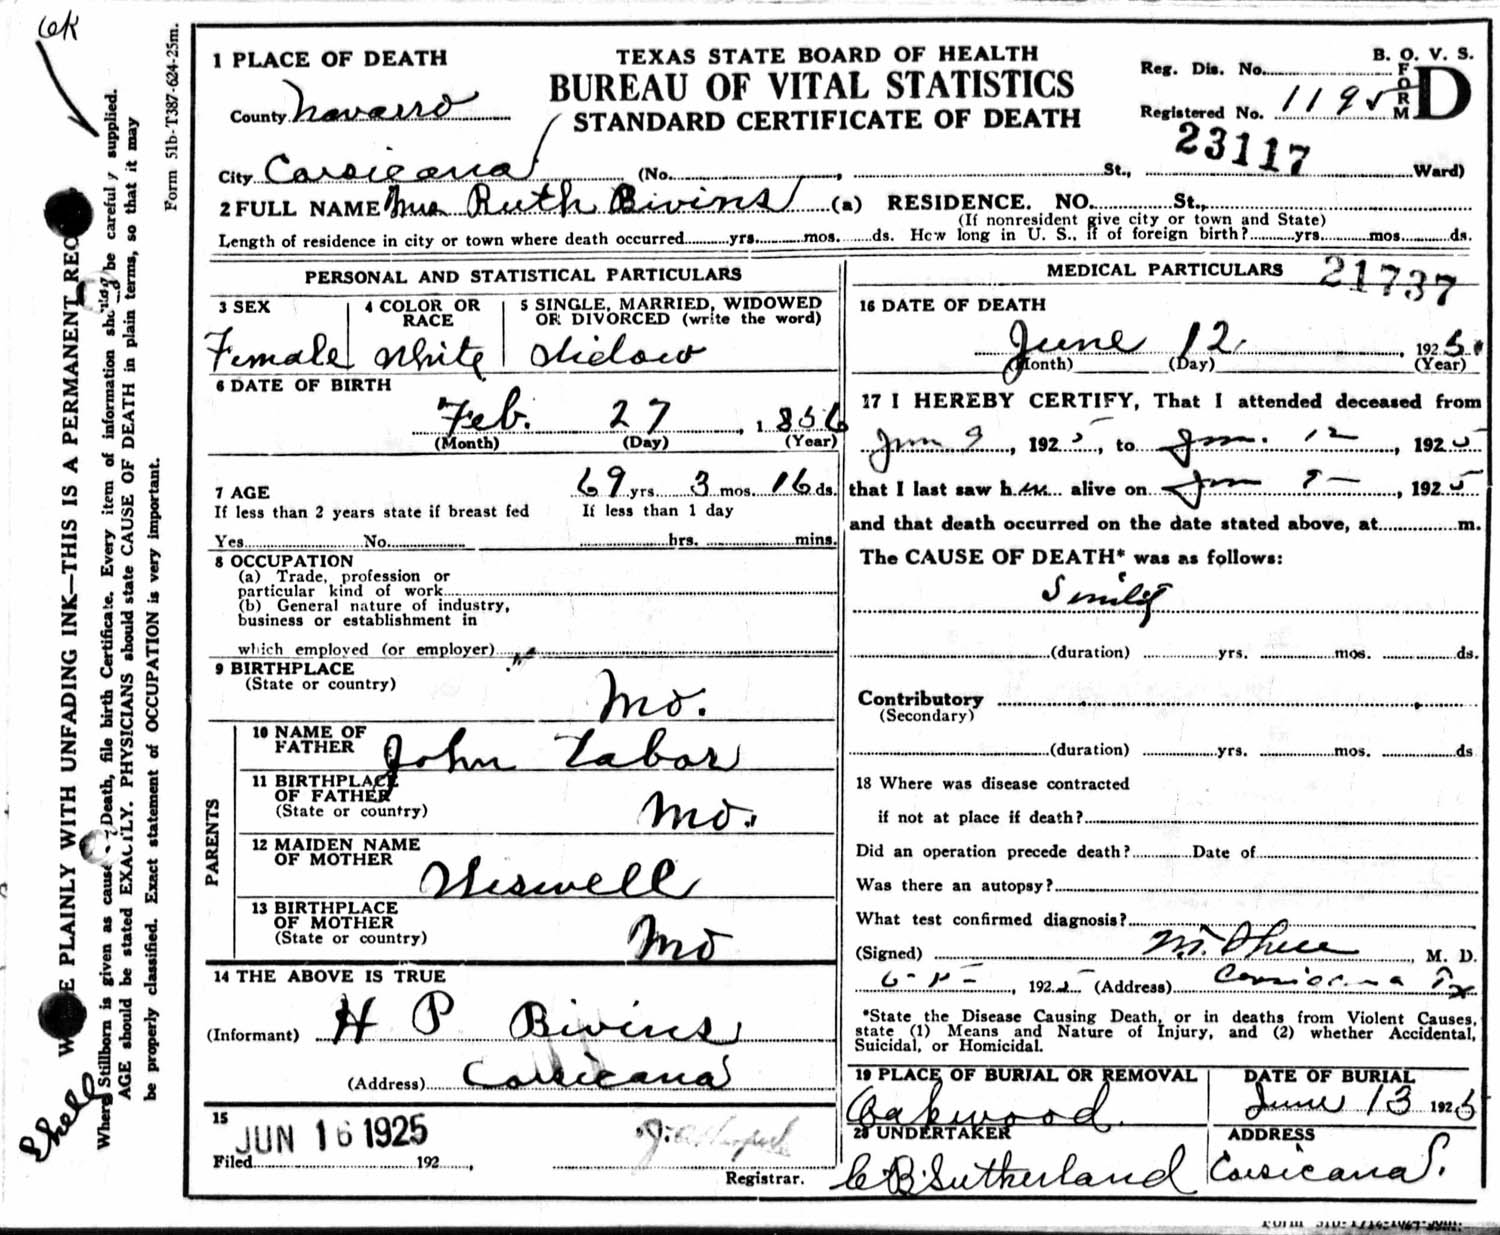 6K
Form 51b-T387-624-25m.
PLAINLY WITH UNFADING INK—THIS IS A PERMANENT REC
Where Stillborn is given as cause Death, file birth Certificate. Every item of information should be careful y supplied.
AGE should be stated EXACTLY. PHYSICIANS should state CAUSE OF DEATH in plain terms, so that it may
be properly classified. Exact statement of OCCUPATION is very important.
Shell
1 PLACE OF DEATH
TEXAS STATE BOARD OF HEALTH
B. O. V. S.
BUREAU OF VITAL STATISTICS
Reg. Dis. No.
FORM D
County Navarro
STANDARD CERTIFICATE OF DEATH
Registered No. 1195
23117
City Corsicana (No. , St., Ward)
2 FULL NAME Mrs Ruth Bivins (a) RESIDENCE. NO. St.,
(If nonresident give city or town and State)
Length of residence in city or town where death occurred yrs. mos. ds. How long in U. S., if of foreign birth? yrs. mos. ds.
PERSONAL AND STATISTICAL PARTICULARS
3 SEX 4 COLOR OR RACE 5 SINGLE, MARRIED, WIDOWED OR DIVORCED (write the word)
Female White Widow
6 DATE OF BIRTH
Feb. 27, 1856
(Month) (Day) (Year)
7 AGE 69 yrs. 3 mos. 16 ds.
If less than 2 years state if breast fed If less than 1 day
Yes No. hrs. mins.
8 OCCUPATION
(a) Trade, profession or
particular kind of work
(b) General nature of industry,
business or establishment in
which employed (or employer)
9 BIRTHPLACE
(State or country) Mo.
PARENTS
10 NAME OF FATHER John Tabor
11 BIRTHPLACE OF FATHER
(State or country) Mo.
12 MAIDEN NAME OF MOTHER Wiswell
13 BIRTHPLACE OF MOTHER
(State or country) Mo
14 THE ABOVE IS TRUE
(Informant) H P Bivins
(Address) Corsicana
15
JUN 16 1925
Filed 192 ,
Registrar.
MEDICAL PARTICULARS 21737
16 DATE OF DEATH
June 12, 1925.
(Month) (Day) (Year)
17 I HEREBY CERTIFY, That I attended deceased from
Jun 9, 1925, to Jun. 12, 1925
that I last saw her alive on Jun 9, 1925
and that death occurred on the date stated above, at m.
The CAUSE OF DEATH* was as follows:
Senility
(duration) yrs. mos. ds.
Contributory
(Secondary)
(duration) yrs. mos. ds
18 Where was disease contracted
if not at place if death?
Did an operation precede death? Date of
Was there an autopsy?
What test confirmed diagnosis?
(Signed) , M. D.
, 192 (Address) Corsicana Tx
*State the Disease Causing Death, or in deaths from Violent Causes,
state (1) Means and Nature of Injury, and (2) whether Accidental,
Suicidal, or Homicidal.
19 PLACE OF BURIAL OR REMOVAL DATE OF BURIAL
Oakwood. June 13 1925
20 UNDERTAKER ADDRESS
C B Sutherland Corsicana